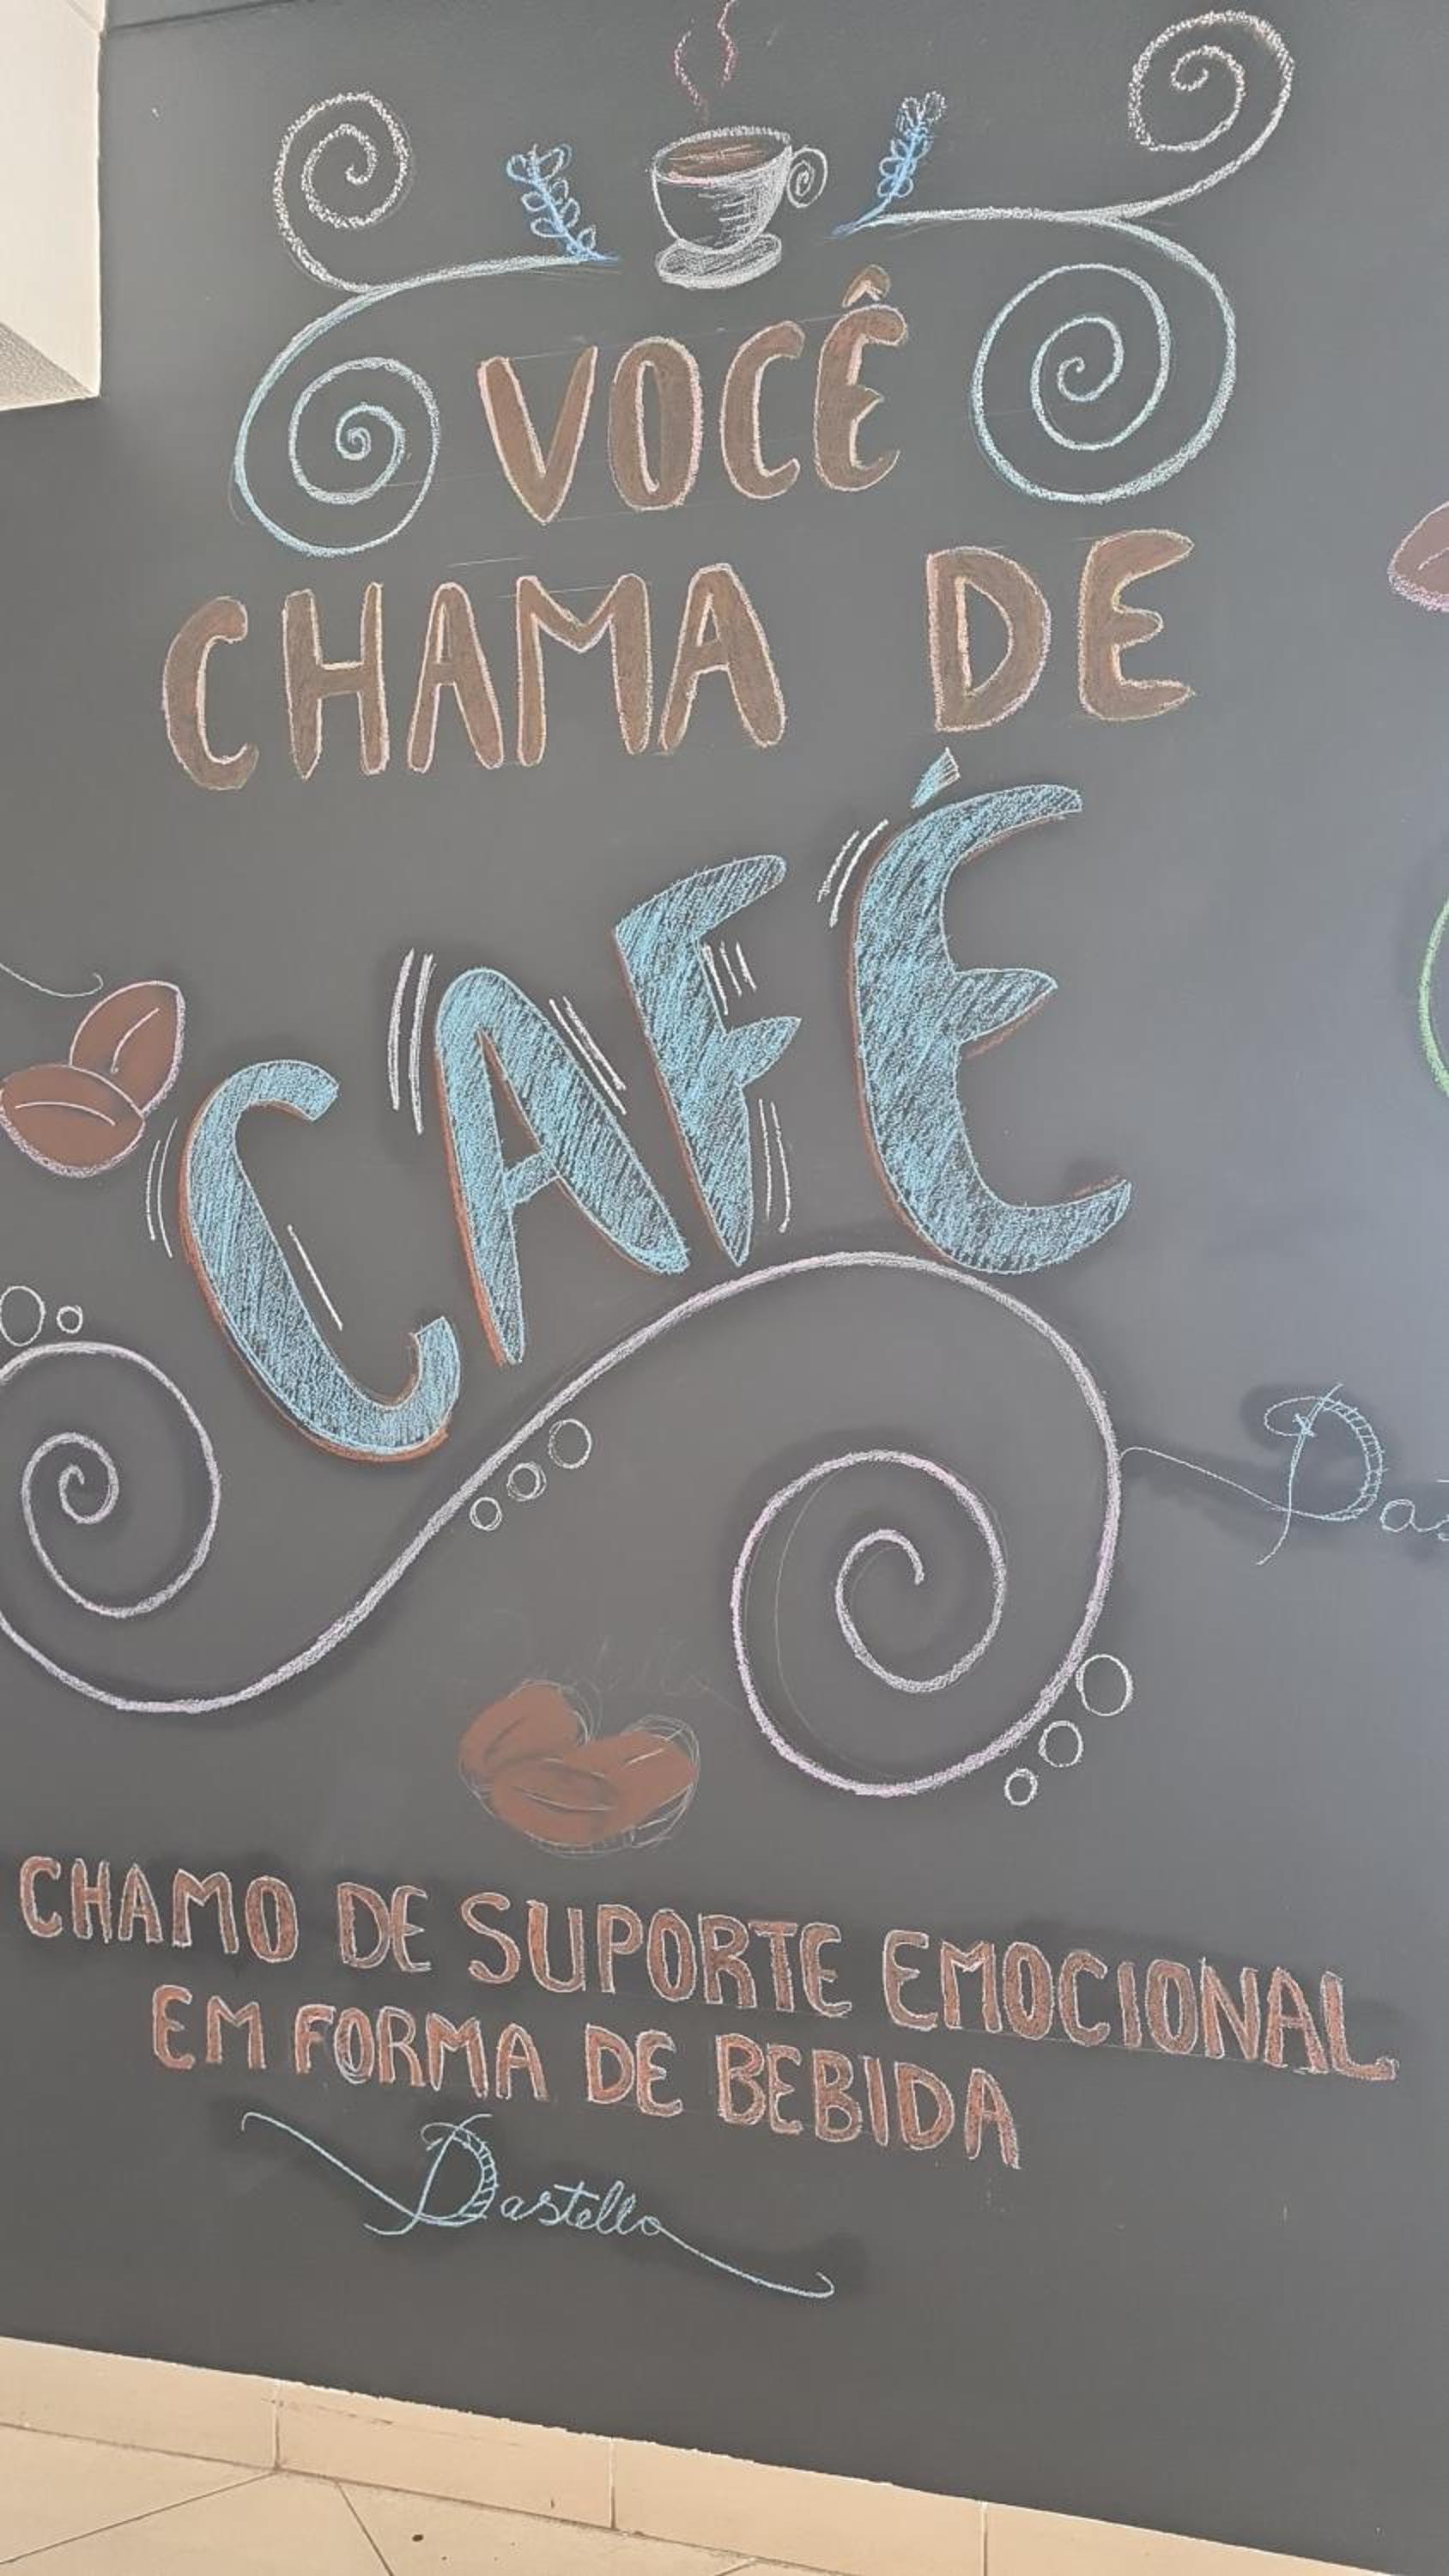 VOCÊ
CHAMA DE
CAFÉ
CHAMO DE SUPORTE EMOCIONAL
EM FORMA DE BEBIDA
Dastella